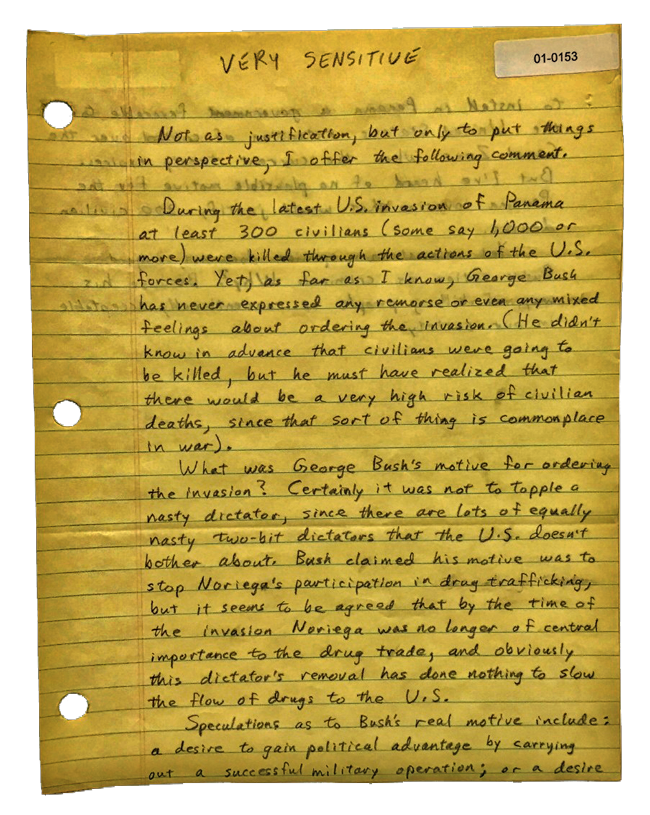 VERY SENSITIVE
01-0153
Not as justification, but only to put things
in perspective, I offer the following comment.
During the latest U.S. invasion of Panama
at least 300 civilians (some say 1,000 or
more) were killed through the actions of the U.S.
forces. Yet, as far as I know, George Bush
has never expressed any remorse or even any mixed
feelings about ordering the invasion. (He didn't
know in advance that civilians were going to
be killed, but he must have realized that
there would be a very high risk of civilian
deaths, since that sort of thing is commonplace
in war).
What was George Bush's motive for ordering
the invasion? Certainly it was not to topple a
nasty dictator, since there are lots of equally
nasty two-bit dictators that the U.S. doesn't
bother about. Bush claimed his motive was to
stop Noriega's participation in drug trafficking,
but it seems to be agreed that by the time of
the invasion Noriega was no longer of central
importance to the drug trade, and obviously
this dictator's removal has done nothing to slow
the flow of drugs to the U.S.
Speculations as to Bush's real motive include:
a desire to gain political advantage by carrying
out a successful military operation; or a desire